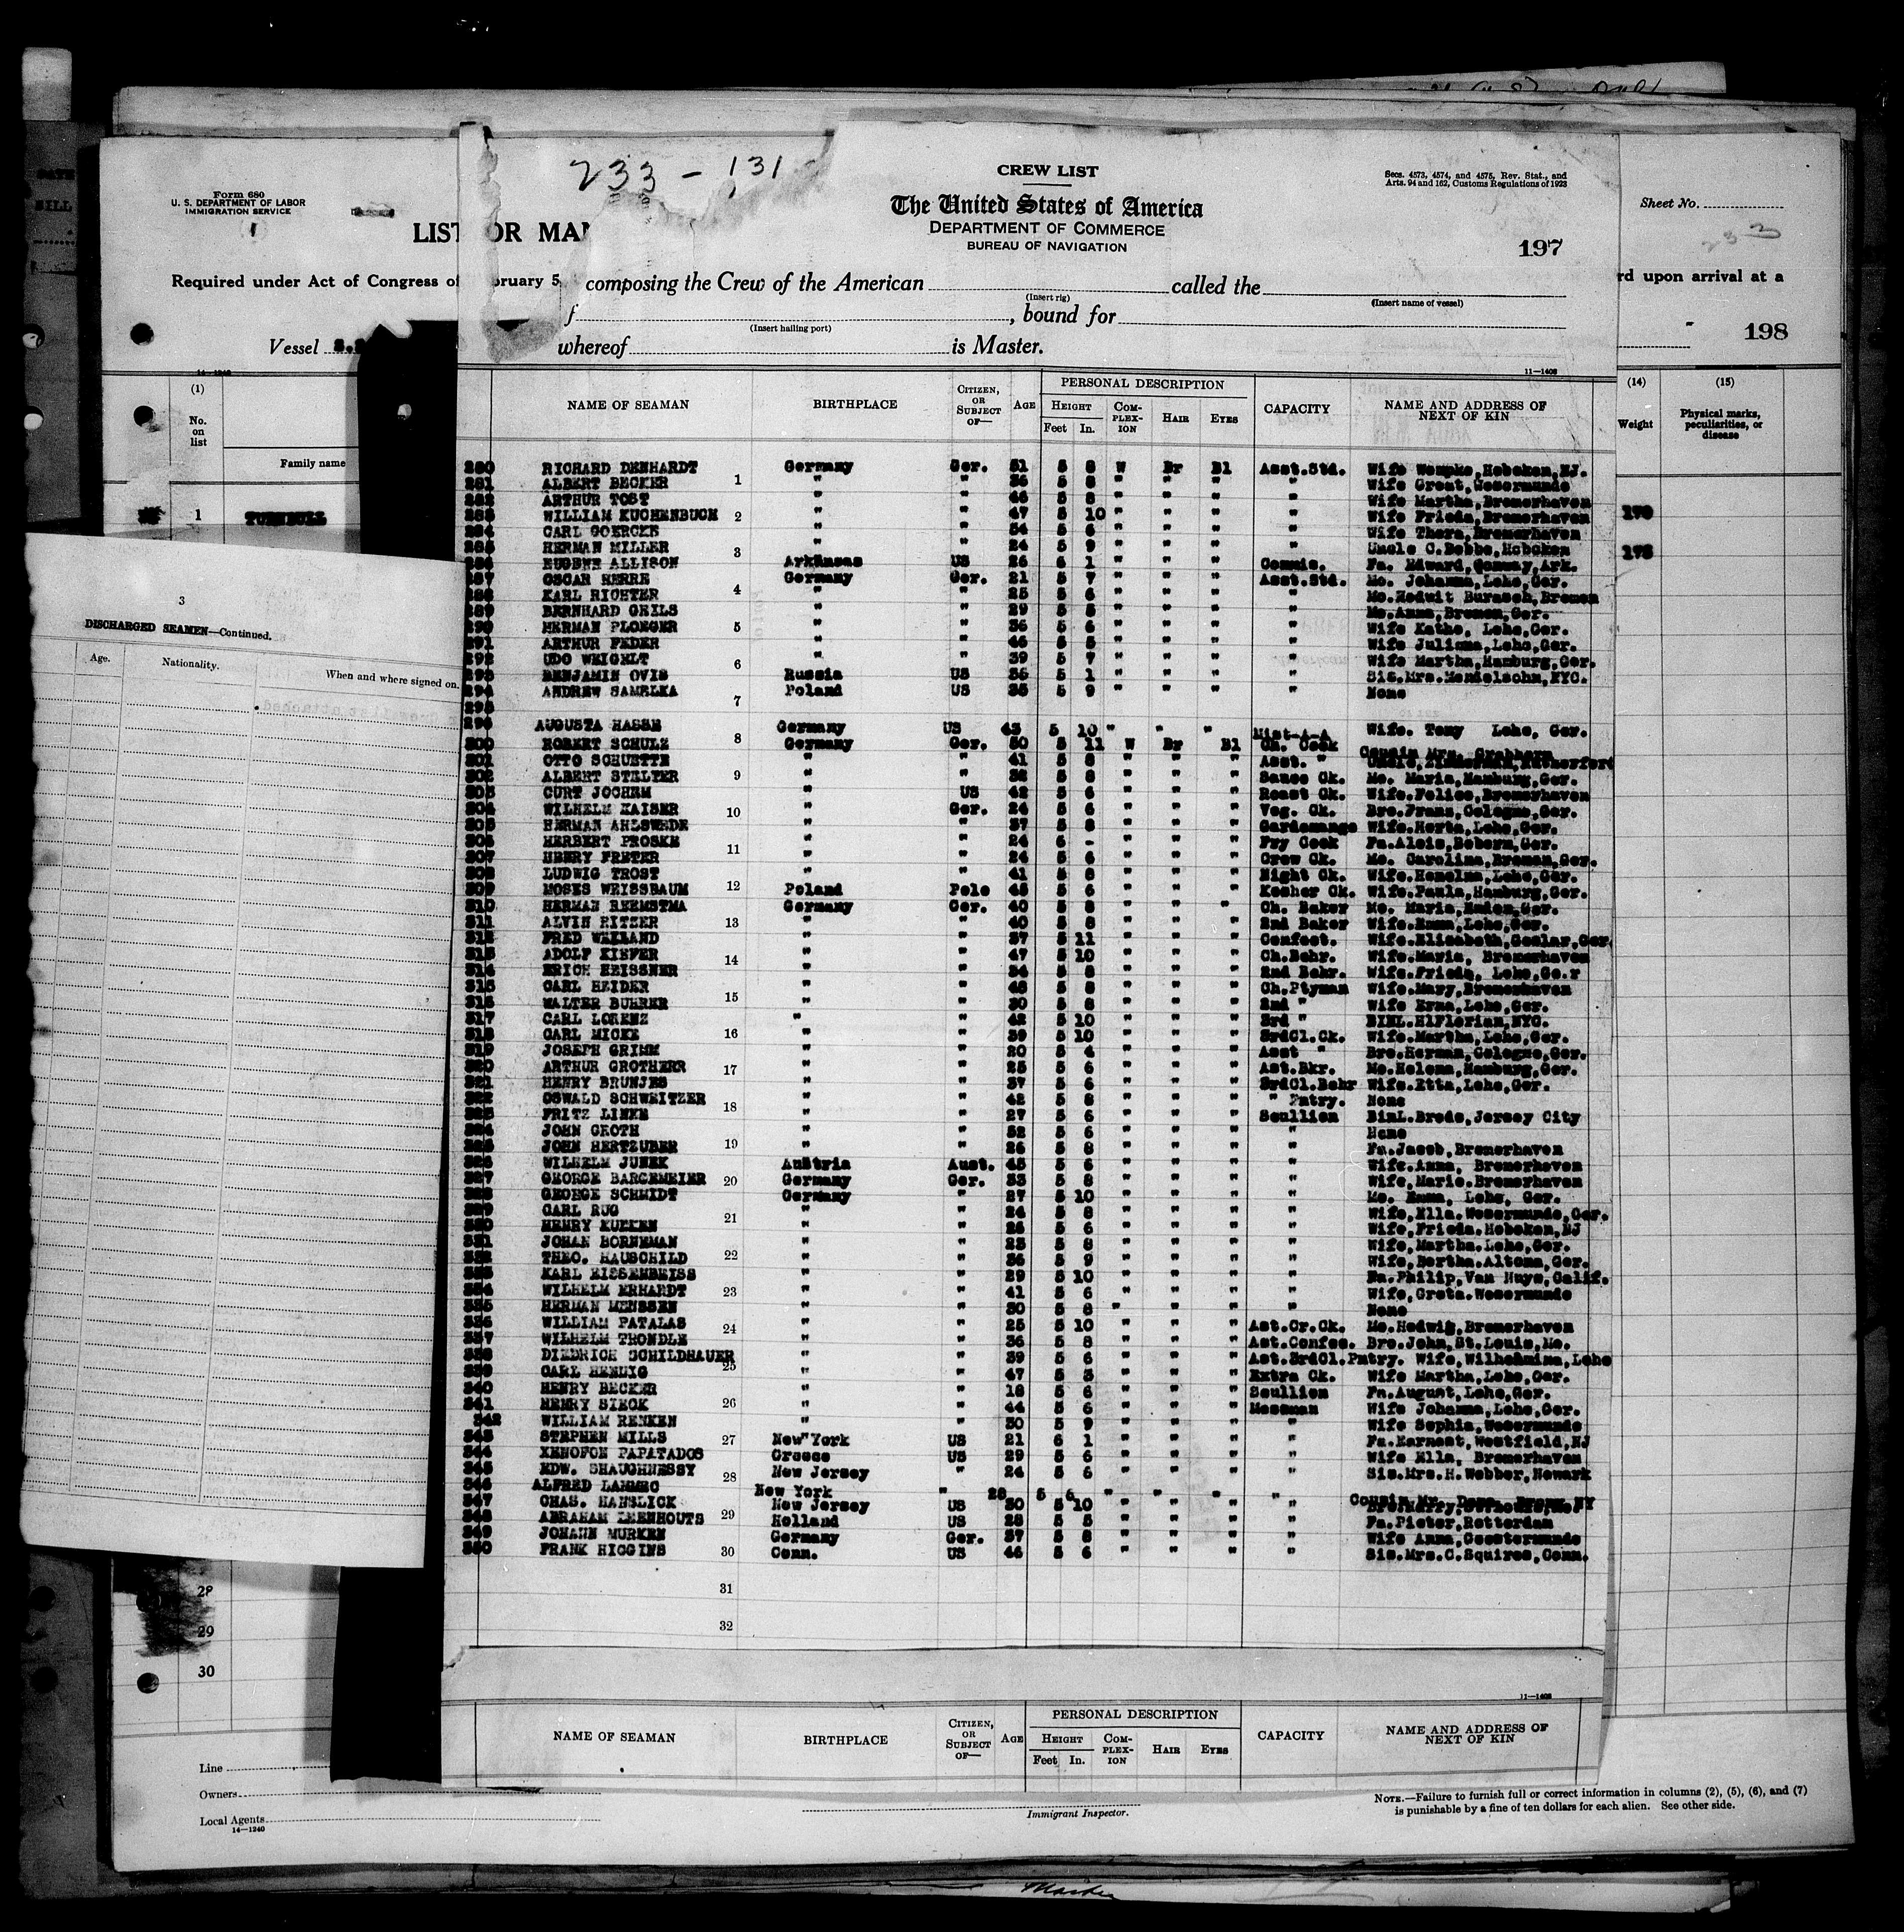 233 - 131
CREW LIST
Secs. 4573, 4574, and 4575, Rev. Stat., and
Arts. 94 and 162, Customs Regulations of 1923
The United States of America
DEPARTMENT OF COMMERCE
BUREAU OF NAVIGATION
197
composing the Crew of the American called the
(Insert rig) (Insert name of vessel)
f , bound for
(Insert hailing port)
whereof is Master.
11—1408
NAME OF SEAMAN BIRTHPLACE CITIZEN, OR SUBJECT OF— AGE PERSONAL DESCRIPTION HEIGHT Feet In. COMPLEXION HAIR EYES CAPACITY NAME AND ADDRESS OF NEXT OF KIN
280 RICHARD DENHARDT Germany Ger. 51 5 8 W Br Bl Asst.Std. Wife Wempke,Hoboken,NJ.
281 ALBERT BECKER 1 " " 36 5 8 " " " " Wife Great,Wesermunde
282 ARTHUR TOST " " 46 5 8 " " " " Wife Martha,Bremerhaven
283 WILLIAM KUCHENBUCH 2 " " 47 5 10 " " " " Wife Frieda,Bremerhaven
284 CARL GOERCKE " " 54 5 6 " " " " Wife Thera,Bremerhaven
285 HERMAN MILLER 3 " " 24 5 9 " " " " Uncle C.Bebbe,Hoboken
286 EUGENE ALLISON Arkansas US 26 6 1 " " " Commis. Fa. Edward,Conway,Ark.
287 OSCAR HERRE Germany Ger. 21 5 7 " " " Asst.Std. Mo. Johanna,Lehe,Ger.
288 KARL RICHTER 4 " " 25 5 6 " " " " Mo.Hedwit Burasch,Bremen
289 BERNHARD GRILS " " 29 5 5 " " " " Mo.Anna,Bremen,Ger.
290 HERMAN PLOEGER 5 " " 36 5 6 " " " " Wife Kathe, Lehe,Ger.
291 ARTHUR FEDER " " 46 5 5 " " " " Wife Julianna,Lehe,Ger.
292 UDO WEIGELT 6 " " 39 5 7 " " " " Wife Martha,Hamburg,Ger.
293 BENJAMIN OVIS Russia US 35 5 1 " " " " Sis.Mrs.Mendelsohn,NYC.
294 ANDREW SAMELKA 7 Poland US 35 5 9 " " " " None
295
296 AUGUSTA HASSE 8 Germany US 43 5 10 " " " Wife. Tony Lehe, Ger.
300 ROBERT SCHULZ Germany Ger. 50 5 11 W Br Bl Ch. Cook Cousin Mrs. Grabhorn
301 OTTO SCHUETTE " " 41 5 8 " " " Asst. "
302 ALBERT STELTER 9 " " 32 5 8 " " " Sauce Ck. Mo. Maria,Hamburg,Ger.
303 CURT JOCHEM " US 42 5 6 " " " Roast Ck. Wife.Felice,Bremerhaven
304 WILHELM KAISER 10 " Ger. 24 5 6 " " " Veg. Ck. Bro.Frans,Cologne,Ger.
305 HERMAN AHLSWEDE " " 37 5 8 " " " Gardemange Wife.Herta,Lehe,Ger.
306 HERBERT PROSKE 11 " " 24 6 - " " " Fry Cook Fa.Alois,Bobern,Ger.
307 HBERY FRETER " " 24 5 6 " " " Crew Ck. Mo. Carolina,Bremen,Ger.
308 LUDWIG TROST " " 41 5 8 " " " Night Ck. Wife.Hemelma,Lehe,Ger.
309 MOSES WEISSBAUM 12 Poland Pole 45 5 6 " " " Kosher Ck. Wife.Paula,Hamburg,Ger.
310 HERMAN REEMSTMA Germany Ger. 40 5 8 " " " Ch. Baker Mo. Maria,Emden,Ger.
311 ALVIN RITZER 13 " " 40 5 8 " " " 2nd Baker Wife.Emma,Lehe,Ger.
312 FRED WEILAND " " 37 5 11 " " " Confect. Wife.Elisabeth,Goslar,Ger
313 ADOLF KIEFER 14 " " 47 5 10 " " " Ch.Bchr. Wife.Maria, Bremerhaven
314 ERICH HEISSNER " " 34 5 8 " " " 2nd Bchr. Wife.Frieda, Lehe,Ge.r
315 CARL HEIDER " " 48 5 8 " " " Ch.Ptyman Wife.Mary,Bremerhaven
316 WALTER BUHRER 15 " " 30 5 8 " " " 2nd " Wife Erna,Lehe,Ger.
317 CARL LORENZ " " 42 5 10 " " " 3rd " BINL.HlFlorian,NYC.
318 CARL MICKE 16 " " 39 5 10 " " " 3rdCl.Ck. Wife.Martha,Lehe,Ger.
319 JOSEPH GRIMM " " 20 5 4 " " " Asst " Bro.Herman,Cologne,Ger.
320 ARTHUR GROTHERR 17 " " 25 5 6 " " " Ast.Bkr. Mo.Helena,Hamburg,Ger.
321 HENRY BRUNJES " " 37 5 6 " " " 3rdCl.Bchr Wife.Etta,Lehe,Ger.
322 OSWALD SCHWEITZER 18 " " 42 5 8 " " " " Pntry. None
323 FRITZ LINKE " " 27 5 6 " " " Scullion BinL.Brede,Jersey City
324 JOHN GROTH " " 52 5 6 " " " " None
325 JOHN HERTZUBER 19 " " 26 5 8 " " " " Fa.Jacob,Bremerhaven
326 WILHELM JUNEK Austria Aust. 45 5 6 " " " " Wife.Anna, Bremerhaven
327 GEORGE BARGEMEIER 20 Germany Ger. 33 5 8 " " " " Wife,Marie.Bremerhaven
328 GEORGE SCHMIDT Germany " 27 5 10 " " " " Mo. Emma, Lehe, Ger.
329 CARL RUG 21 " " 24 5 8 " " " " Wife,Ella.Wesermunde,Ger.
330 HENRY KUEKEN " " 26 5 6 " " " " Wife,Frieda.Hoboken,NJ
331 JOHAN BORNEMAN " " 23 5 8 " " " " Wife,Martha.Lehe,Ger.
332 THEO. HAUSCHILD 22 " " 36 5 9 " " " " Wife,Bertha.Altona,Ger.
333 KARL EISSENBEISS " " 29 5 10 " " " " Fa.Philip,Van Nuys,Calif.
334 WILHELM ERHARDT 23 " " 41 5 6 " " " " Wife,Greta.Wesermunde
335 HERMAN MENSSEN " " 30 5 8 " " " " None
336 WILLIAM PATALAS 24 " " 25 5 10 " " " Ast.Cr.Ck. Mo.Hedwig,Bremerhaven
337 WILHELM TRONDLE " " 36 5 8 " " " Ast.Confec. Bro.John,St.Louis,Mo.
338 DIEDRICH SCHILDHAUER 25 " " 39 5 6 " " " Ast.3rdCl.Pntry. Wife,Wilhelmina,Lehe
339 CARL HENDIG " " 47 5 3 " " " Extra Ck. Wife Martha,Lehe,Ger.
340 HENRY BECKER " " 18 5 6 " " " Scullion Fa.August,Lehe,Ger.
341 HENRY SIECK 26 " " 44 5 6 " " " Messman Wife Johanna,Lehe,Ger.
342 WILLIAM RENKEN " " 30 5 9 " " " " Wife Sophia,Wesermunde
343 STEPHEN MILLS 27 New York US 21 6 1 " " " " Fa.Earnest,Westfield,NJ
344 XENOFON PAPATADOS Greece US 29 5 6 " " " " Wife Ella, Bremerhaven
345 EDW. SHAUGHNESSY 28 New Jersey " 24 5 6 " " " " Sis.Mrs.H.Webber,Newark
346 ALFRED LAMMEC New York " 28 5 6 " " " " Cousin Mr. Bronx NY
347 CHAS. HANSLICK New Jersey US 30 5 10 " " " "
348 ABRAHAM ZEENHOUTS 29 Holland US 28 5 5 " " " " Fa.Pieter,Rotterdam
349 JOHANN MURKEN Germany Ger. 37 5 8 " " " " Wife Anna,Geestermunde
350 FRANK HIGGINS 30 Conn. US 46 5 6 " " " " Sis.Mrs.C.Squires,Conn.
31
32
11—1408
NAME OF SEAMAN BIRTHPLACE CITIZEN, OR SUBJECT OF— AGE PERSONAL DESCRIPTION HEIGHT Feet In. COMPLEXION HAIR EYES CAPACITY NAME AND ADDRESS OF NEXT OF KIN
Form 680
U. S. DEPARTMENT OF LABOR
IMMIGRATION SERVICE
LIST OR MA
Required under Act of Congress of February 5,
Vessel S.S
14—1240
(1)
No. on list
Family name
1 TURNBULL
3
DISCHARGED SEAMEN—Continued.
Age. Nationality. When and where signed on.
28
29
30
Line
Owners
Local Agents
14—1240
Immigrant Inspector.
Sheet No.
233
rd upon arrival at a
198
(14) (15)
Weight Physical marks, peculiarities, or disease
170
175
NOTE.—Failure to furnish full or correct information in columns (2), (5), (6), and (7)
is punishable by a fine of ten dollars for each alien. See other side.
Master